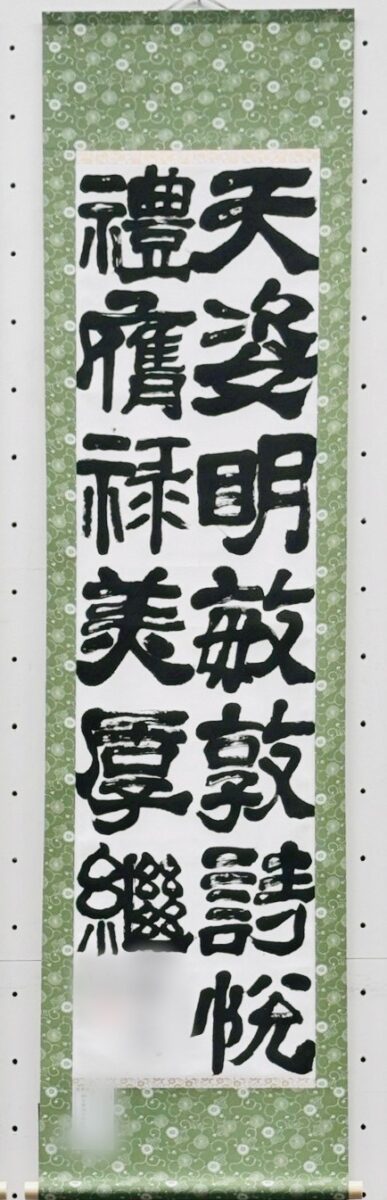 天姿明敏敦詩悅
禮膺祿美厚繼